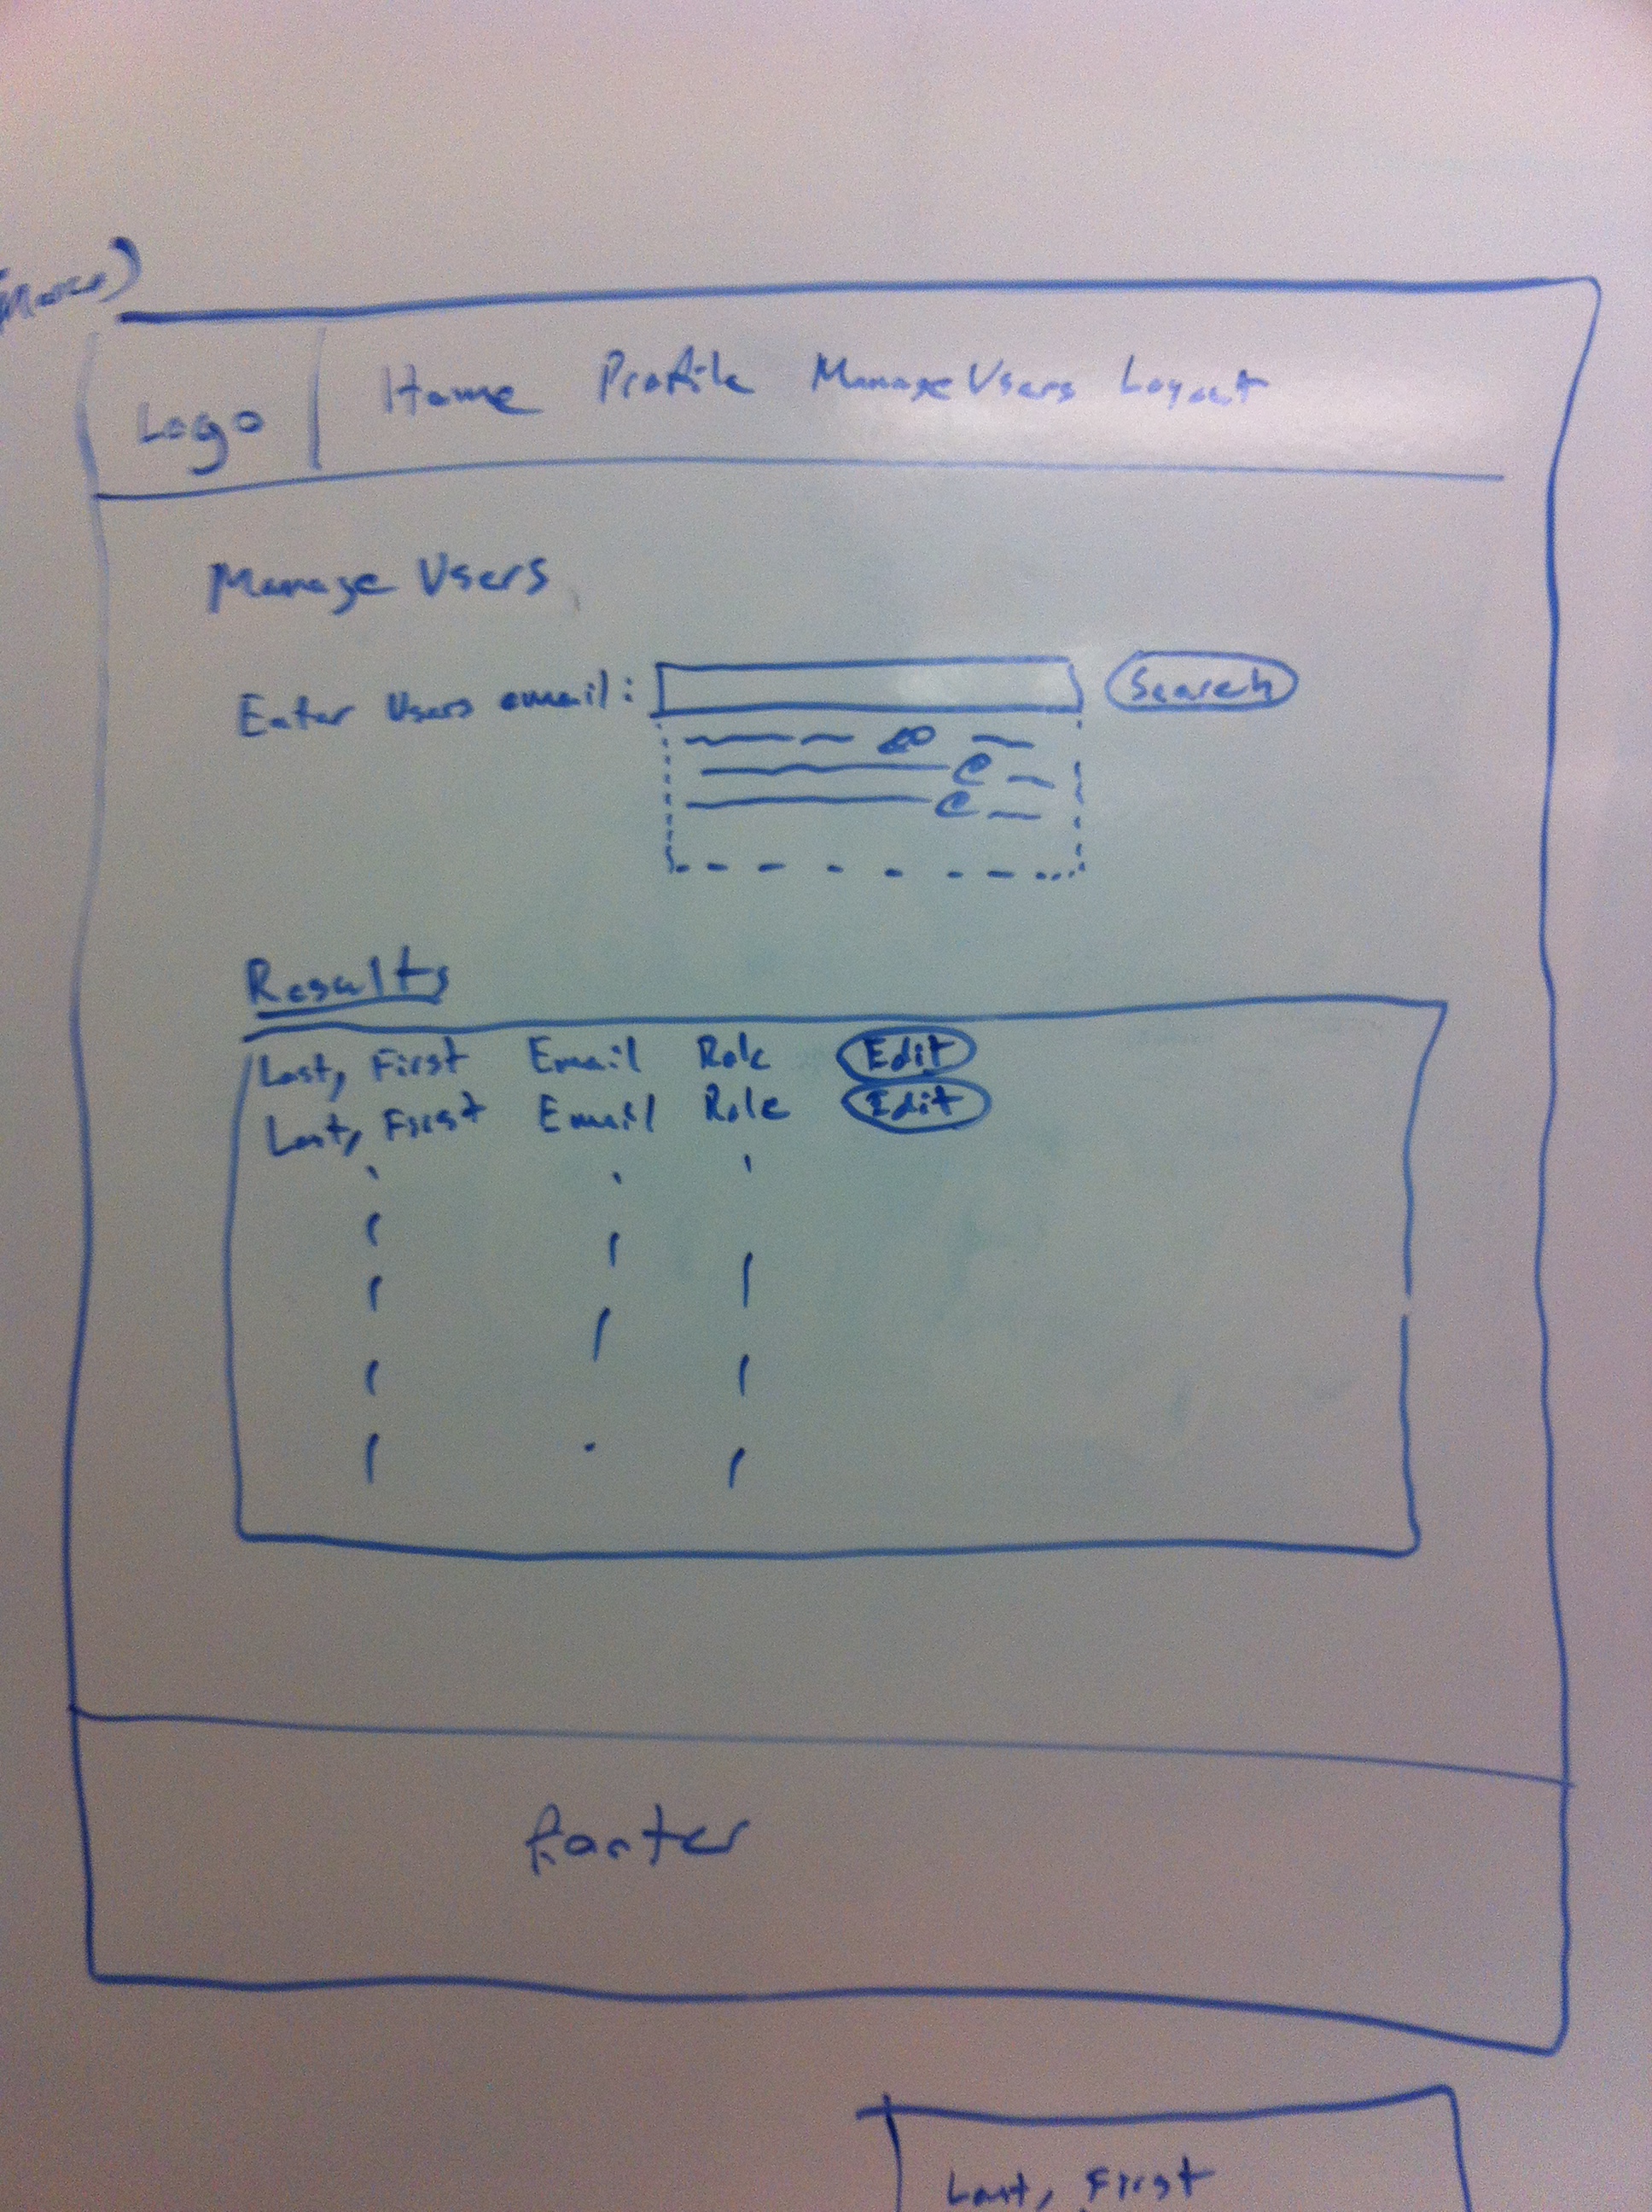 Logo
Home Profile Manage Users Logout
Manage Users
Enter Users email: Search
@
@
@
Results
Last, First Email Role Edit
Last, First Email Role Edit
footer
Last, First